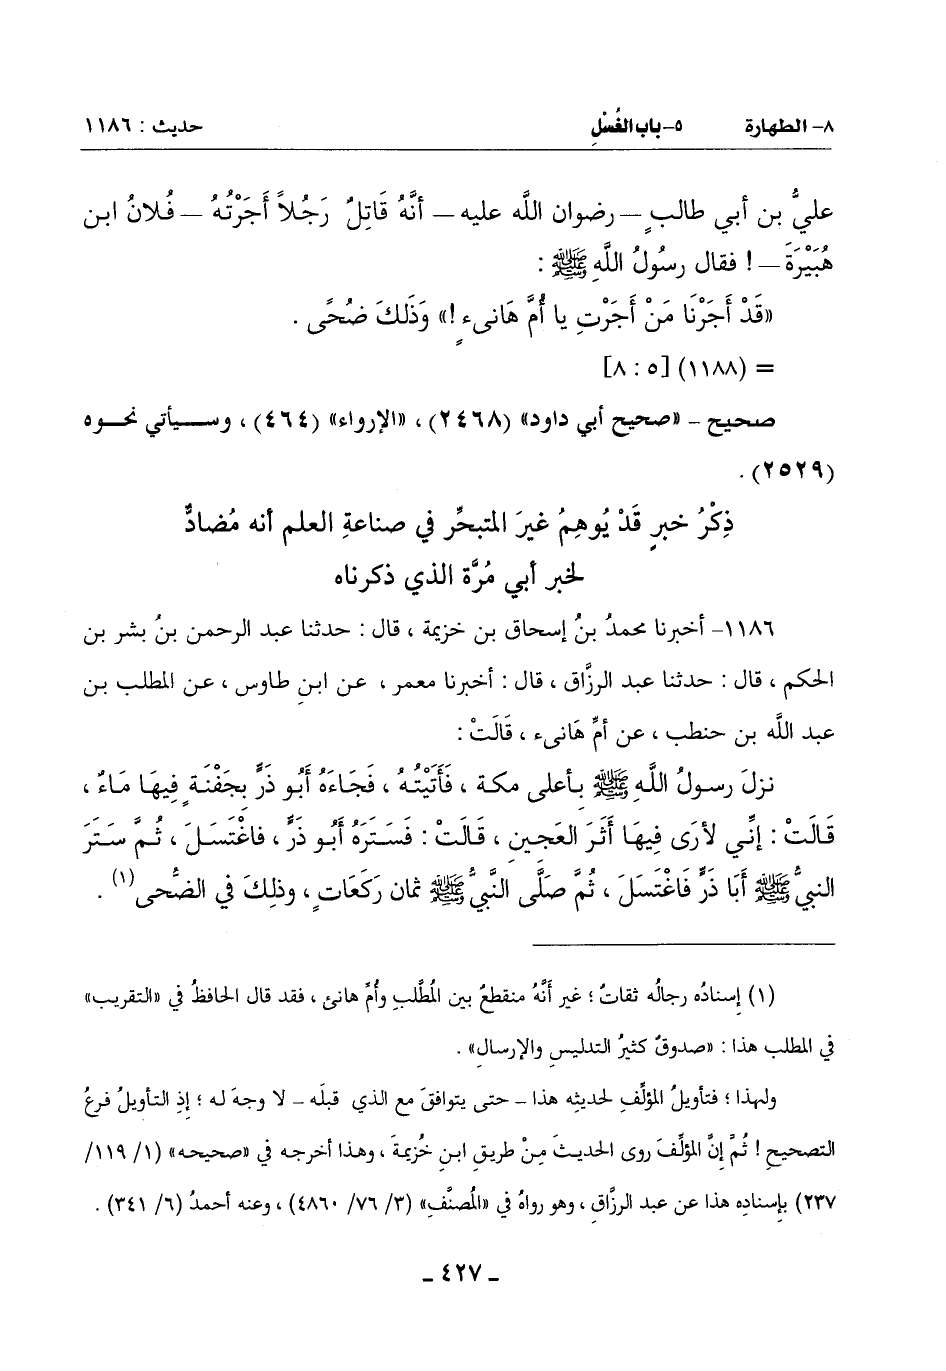 ٨- الطهارة ٥- باب الغُسْلِ حديث : ١١٨٦
عليُّ بن أبي طالبٍ — رضوان الله عليه — أَنَّهُ قَاتِلٌ رَجُلاً أَجَرْتُهُ — فُلانُ ابن
هُبَيْرَةَ — ! فقال رسُولُ اللَّهِ ﷺ :
«قَدْ أَجَرْنَا مَنْ أَجَرْتِ يا أُمَّ هَانىءٍ !» وَذَلكَ ضُحًى .
= (١١٨٨) [٥ : ٨]
صحيح - «صحيح أبي داود» (٢٤٦٨) ، «الإرواء» (٤٦٤) ، وسيأتي نحوه
(٢٥٢٩) .
ذِكْرُ خبرٍ قَدْ يُوهِمُ غيرَ المتبحِّر في صناعةِ العلم أنه مُضادٌّ
لخبر أبي مُرَّة الذي ذكرناه
١١٨٦- أخبرنا محمدُ بنُ إسحاق بن خزيمة ، قال : حدثنا عبد الرحمن بنُ بشر بن
الحكم ، قال : حدثنا عبد الرزَّاق ، قال : أخبرنا معمر ، عن ابنِ طاوس ، عن المطلب بن
عبد اللَّه بن حنطب ، عن أمِّ هَانىء ، قَالَتْ :
نزلَ رسولُ اللَّهِ ﷺ بأعلى مكة ، فَأَتَيْتُهُ ، فَجَاءَهُ أَبُو ذَرٍّ بِجَفْنَةٍ فِيهَا مَاءٌ ،
قَالَتْ : إنِّي لأَرَى فِيهَا أَثَرَ العَجِينِ ، قَالَتْ : فَسَتَرَهُ أَبُو ذَرٍّ ، فاغْتَسَلَ ، ثُمَّ سَتَرَ
النبيُّ ﷺ أَبَا ذَرٍّ فَاغْتَسَلَ ، ثُمَّ صَلَّى النَّبيُّ ﷺ ثمان رَكَعَاتٍ ، وذلِكَ في الضُّحى(١) .
(١) إسنادُه رجالُه ثقاتٌ ؛ غير أَنَّهُ منقطعٌ بين المُطَّلبِ وأُمِّ هانئ ، فقد قال الحافظُ في «التقريب»
في المطلب هذا : «صدوقٌ كثيرُ التدليسِ والإرسالِ» .
ولهذا ؛ فتأويلُ المؤلِّفِ لحديثِه هذا - حتى يتوافقَ مع الذي قبلَه - لا وجهَ له ؛ إذِ التأويلُ فرعُ
التصحيحِ ! ثُمَّ إنَّ المؤلِّفَ روى الحديثَ مِنْ طريقِ ابنِ خُزيمةَ ، وهذا أخرجه في «صحيحه» (١/ ١١٩/
٢٣٧) بإسنادِه هذا عن عبد الرزَّاقِ ، وهو رواهُ في «المُصنَّفِ» (٣/ ٧٦/ ٤٨٦٠) ، وعنه أحمدُ (٦/ ٣٤١) .
- ٤٢٧ -